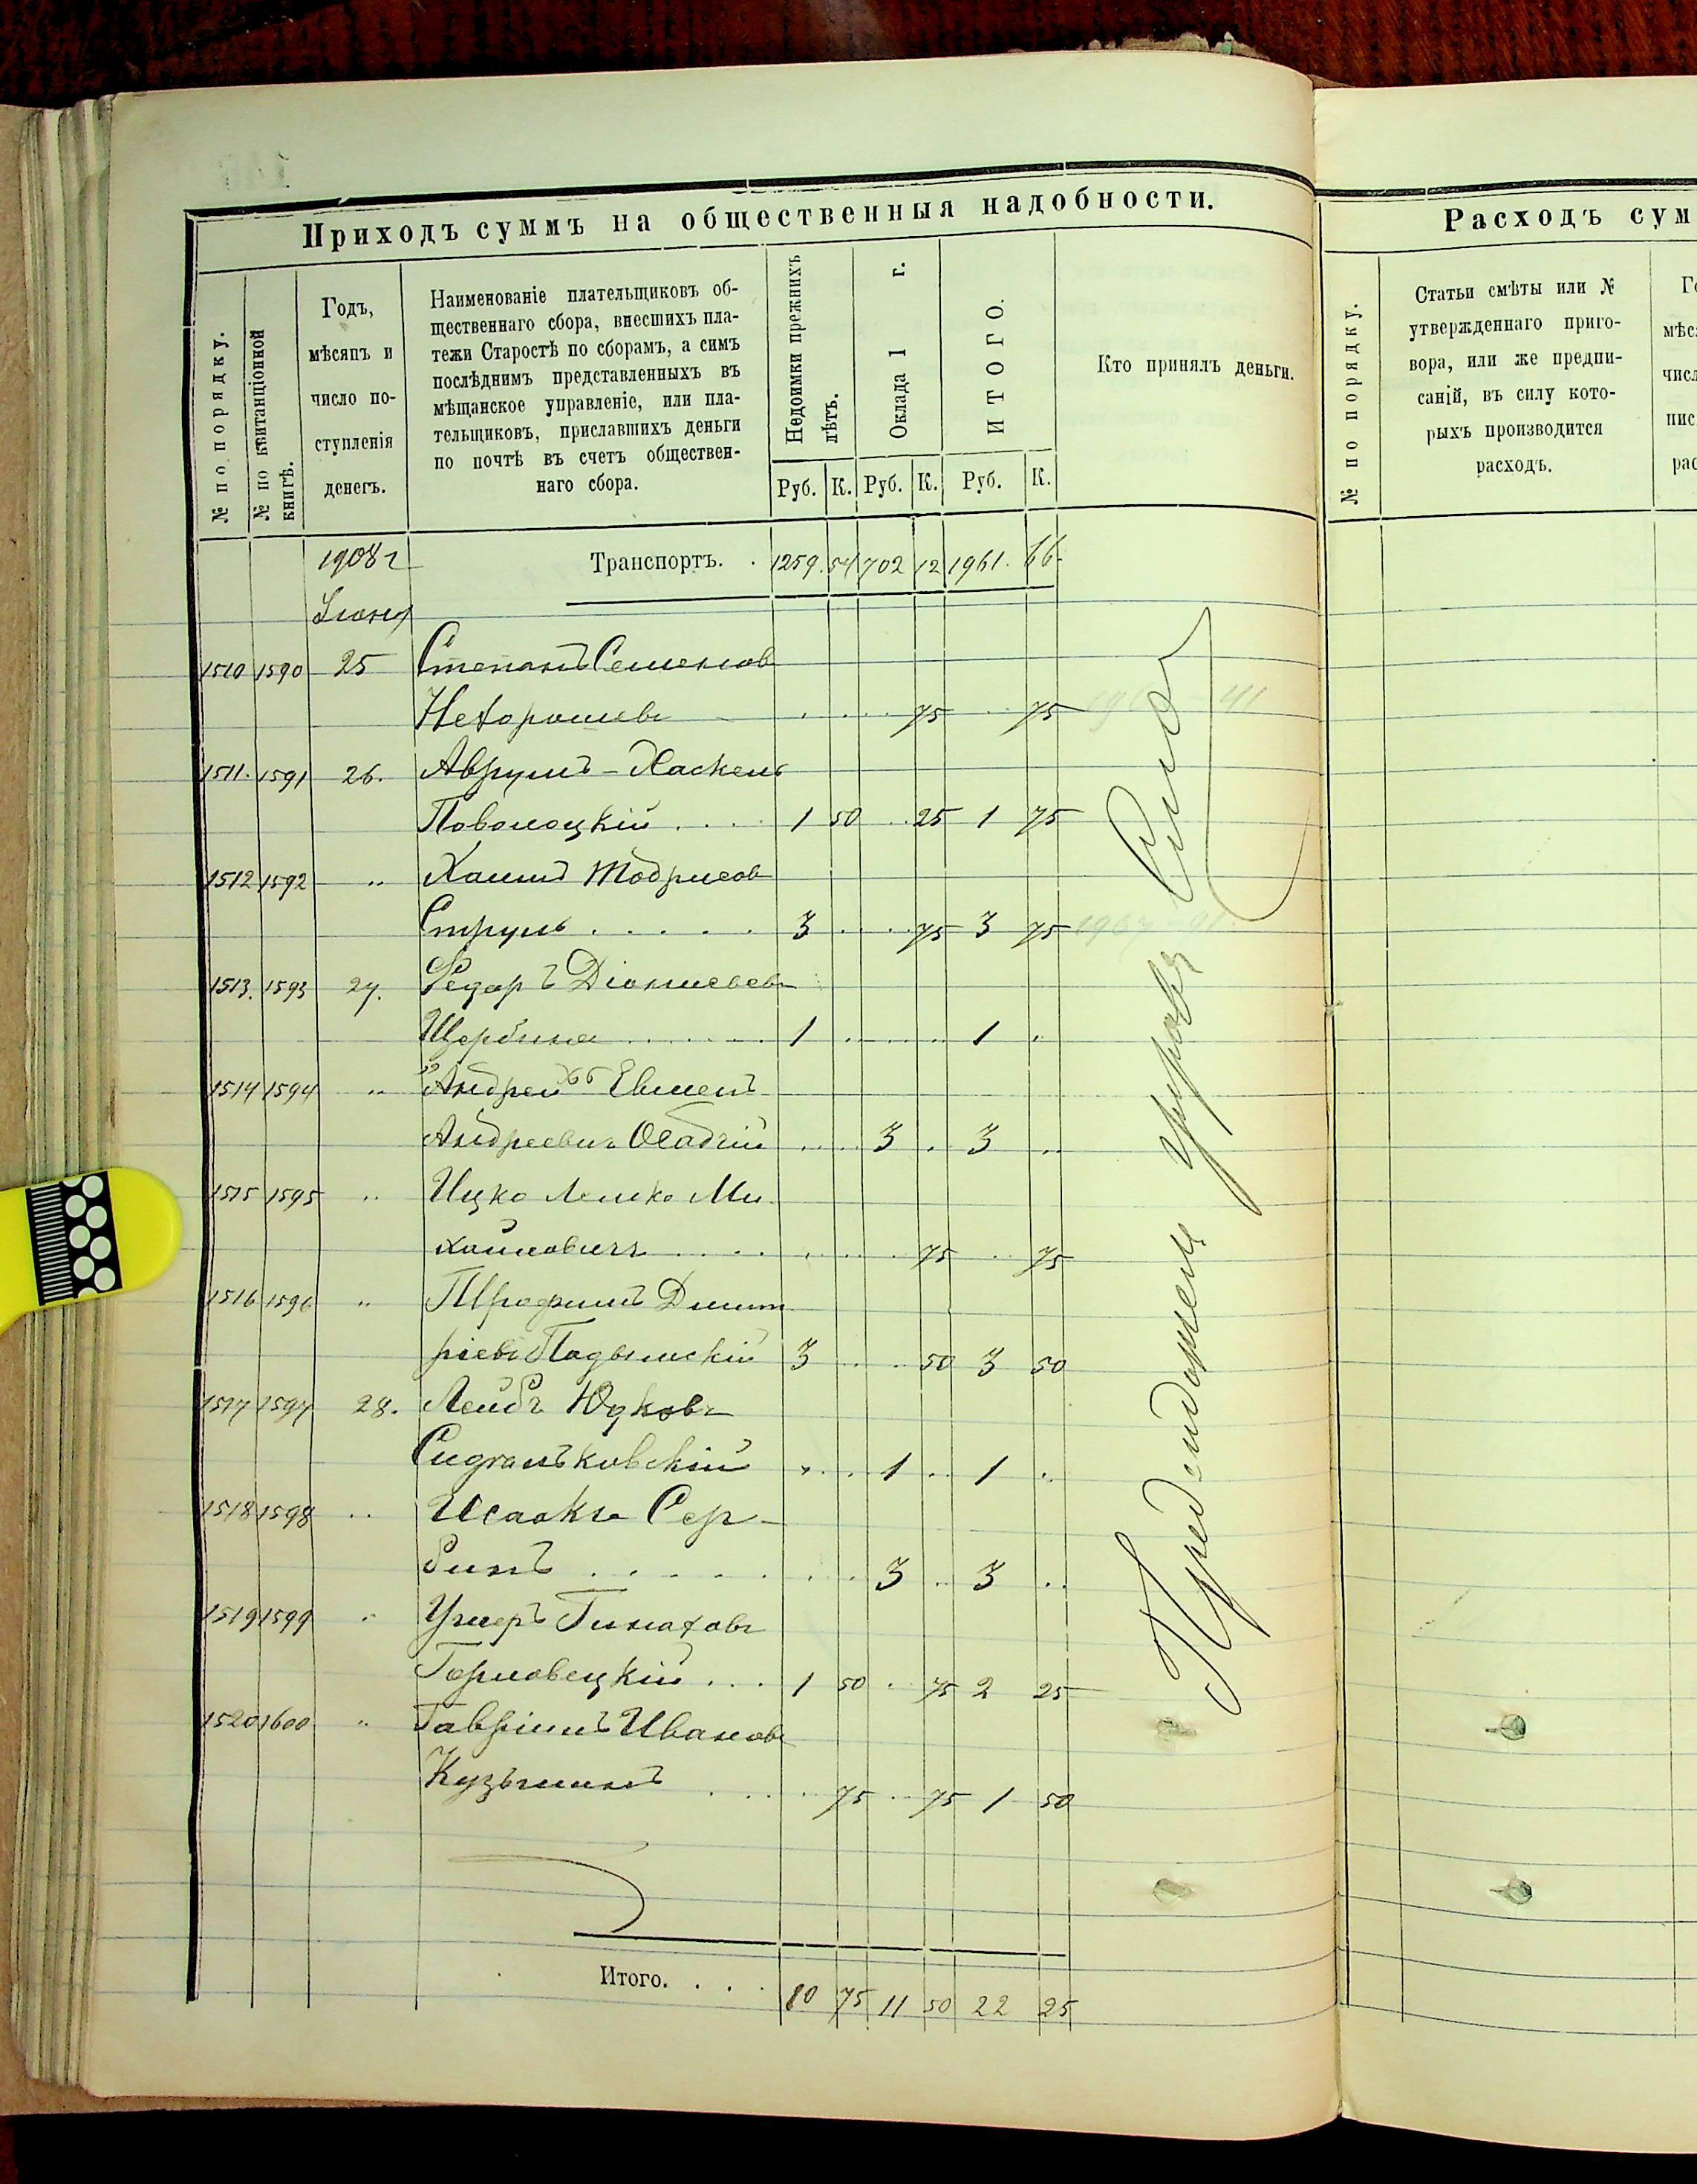 Приходъ суммъ на общественныя надобности.
№ по порядку.
№ по квитанціонной книгѣ.
Годъ,
мѣсяцъ и
число по-
ступленія
денегъ.
Наименованіе плательщиковъ об-
щественнаго сбора, внесшихъ пла-
тежи Старостѣ по сборамъ, а симъ
послѣднимъ представленныхъ въ
мѣщанское управленіе, или пла-
тельщиковъ, приславшихъ деньги
по почтѣ въ счетъ обществен-
наго сбора.
Недоимки прежнихъ
лѣтъ.
Оклада 1 г.
ИТОГО.
Кто принялъ деньги.
Руб. К. Руб. К. Руб. К.
1908 г Транспортъ. . 1259. 54 702 12 1961. 66
Іюня
1510 1590 25 Степанъ Семенов
Нехорошевъ 75 75
1511. 1591 26. Аврумъ-Хаскель
Поволоцкій . . . . 1 50 25 1 75
1512 1592 „ Хаимъ Тодрисов
Струль . . . . . 3 75 3 75
1513. 1593 27. Федоръ Діонисьевъ
Щербина 1 1
1514 1594 „ „Андрей“ Евменъ
Андреевичъ Осадчій 3 3
1515 1595 „ Ицко Лейко Ми-
хайловичъ . . . . 75 75
1516 1596 „ Трофимъ Димит
ріевъ 3 50 3 50
1517 1597 28. Лейбъ Юдковъ
1 1
1518 1598 „ Исаакъ Сер-
бинъ . . . . . 3 3
1519 1599 „
. . . 1 50 75 2 25
1520 1600 „ Гавріилъ Ивановъ
Кузьминъ 75 75 1 50
Итого. . . . 10 75 11 50 22 25
Расходъ сум
№ по порядку.
Статьи смѣты или №
утвержденнаго приго-
вора, или же предпи-
саній, въ силу кото-
рыхъ производится
расходъ.
Го
мѣс
числ
пис
рас